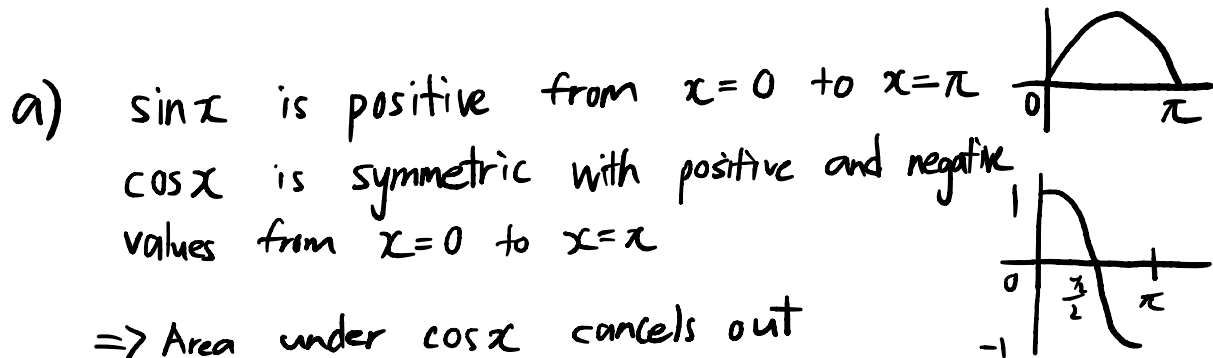 a) sinx is positive from x=0 to x=π
0 π
cosx is symmetric with positive and negative
values from x=0 to x=π
1
0 π/2 π
=> Area under cosx cancels out
-1